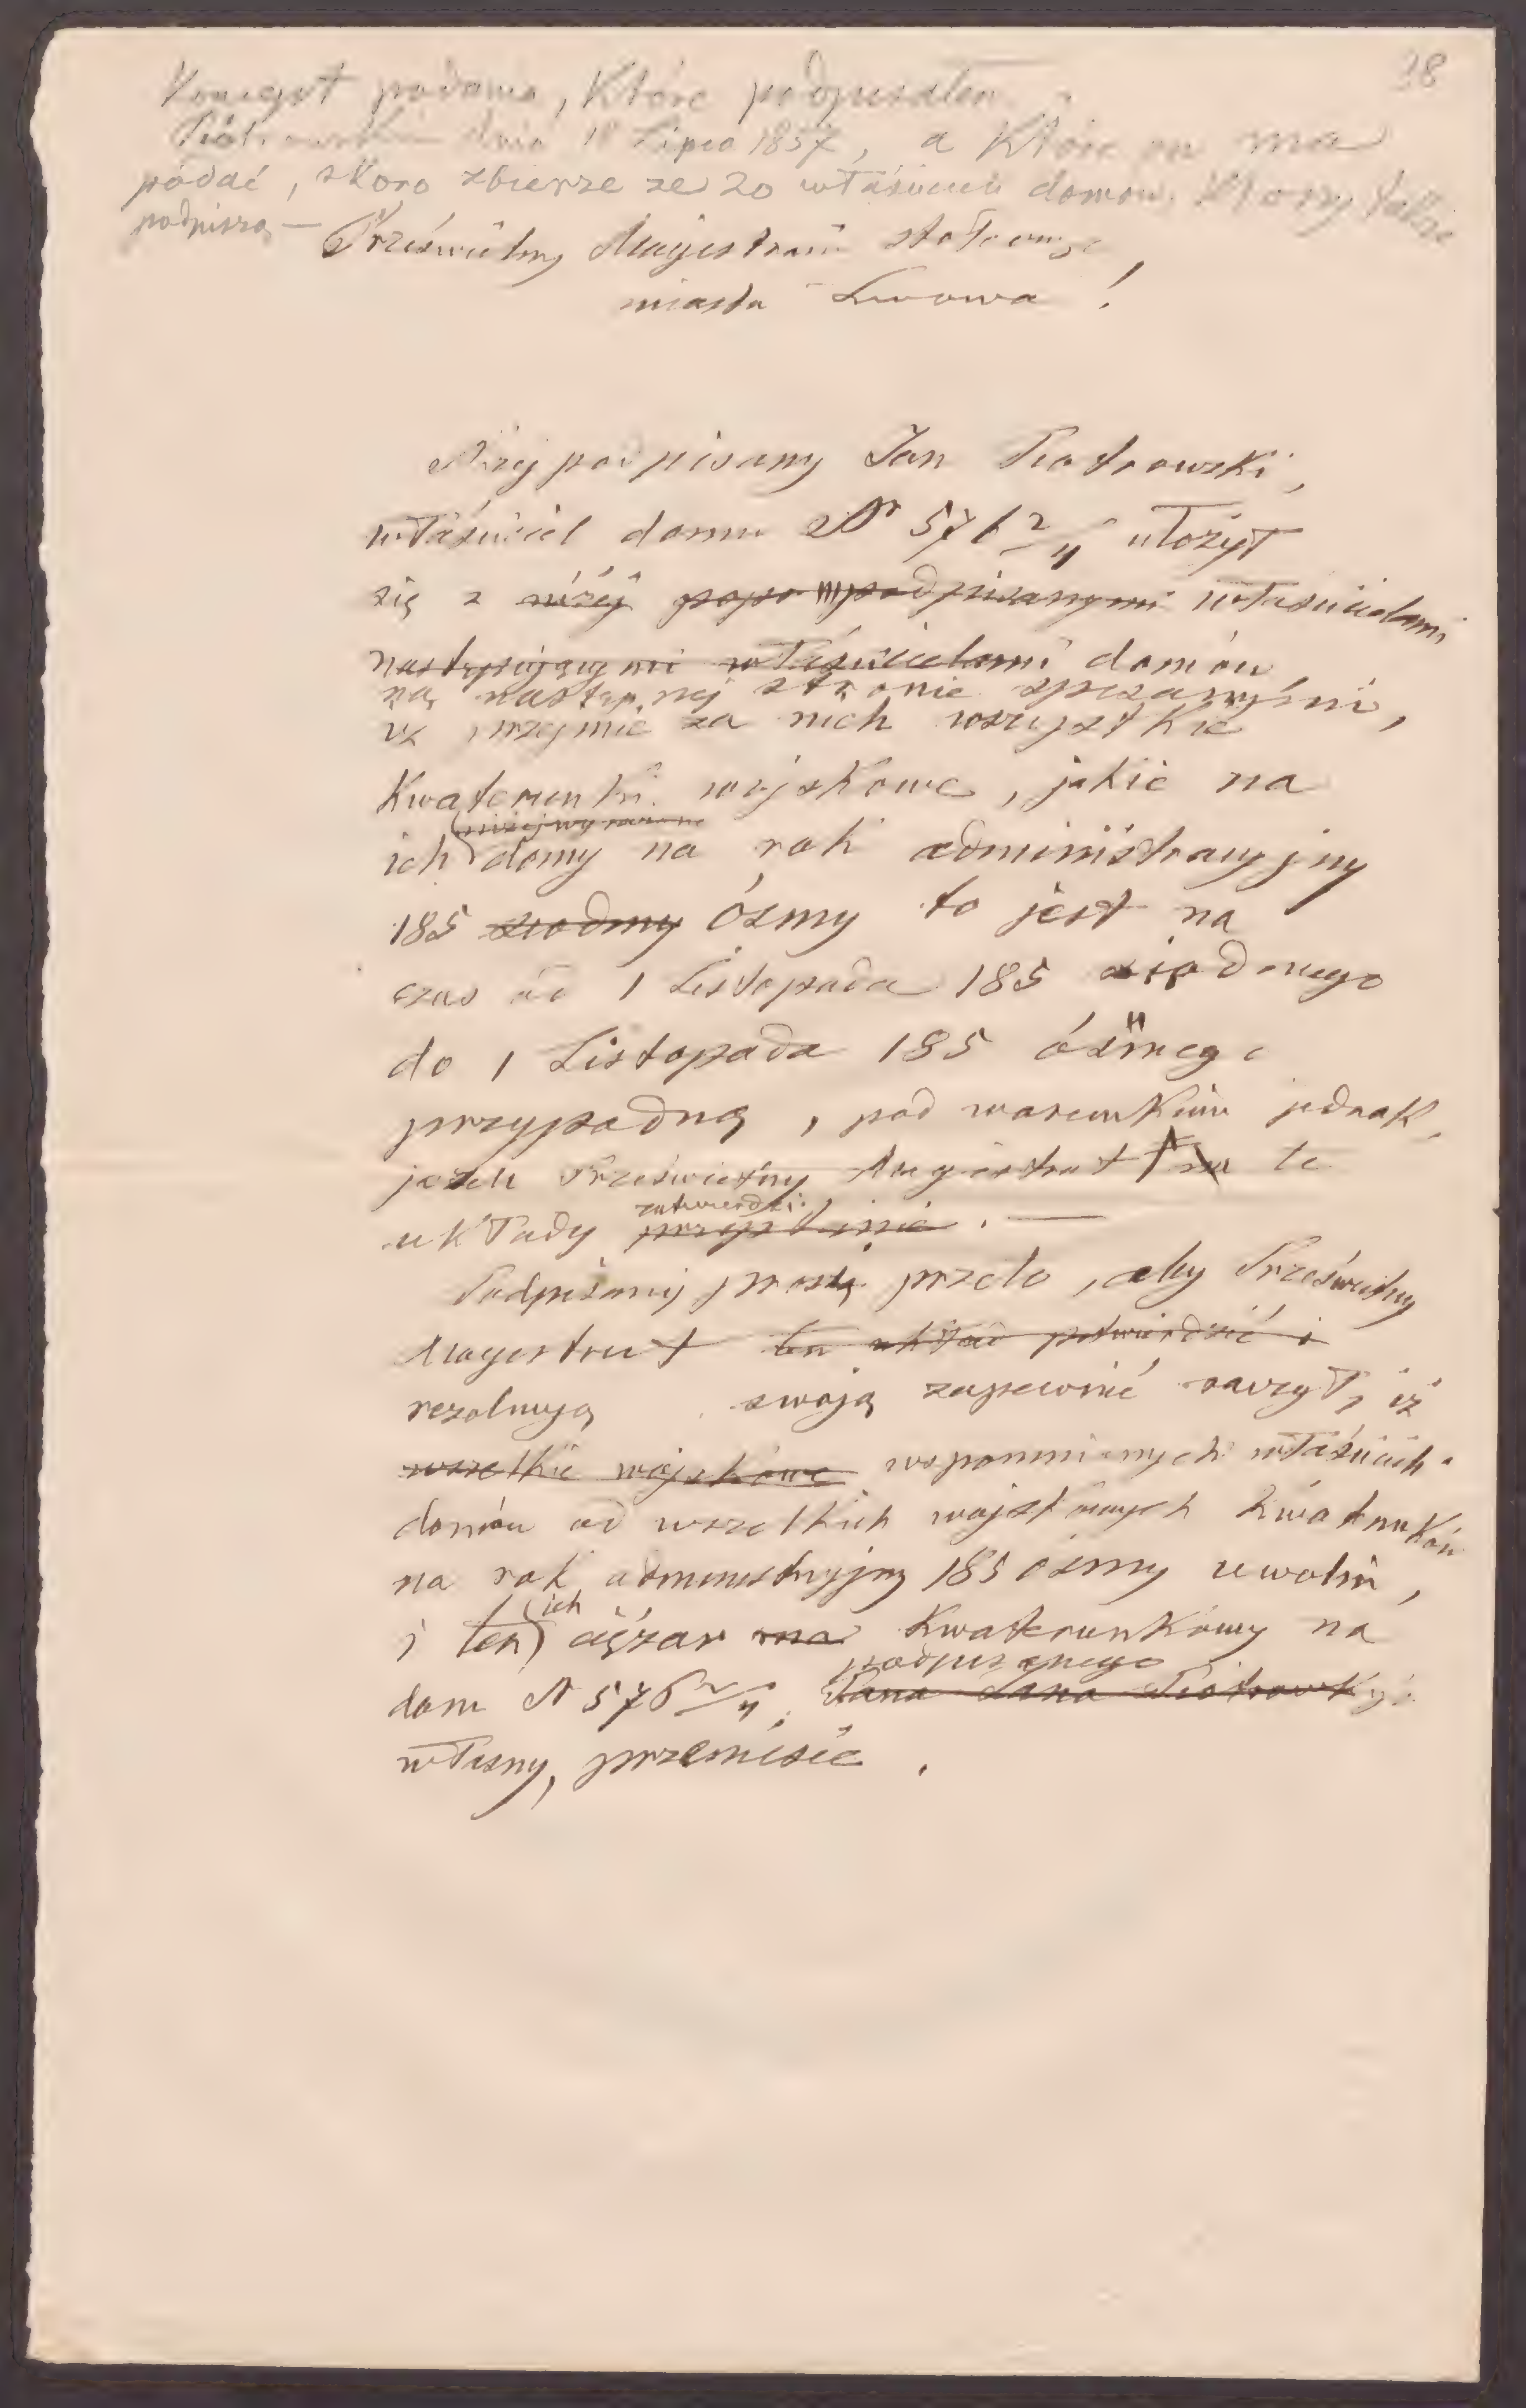 38
Koncept podania, które podpisałem
Piotrowski dnia 18 Lipca 1857, a które on ma
podać, skoro zbierze ze 20 właścicieli domów, którzy także
podpiszą —
Prześwietny Magistracie stołecznego
miasta Lwowa!
Niżej podpisany Jan Piotrowski,
właściciel domu N 576 2/4 ułożył
się z niżéj popo podpisanymi właścicielami
następującymi właścicielami domów
na następnej stronie spisanymi,
iż przyjmie za nich wszystkie
kwaterunki wojskowe, jakie na
niżej wyrażone
ich domy na rok administracyjny
185 siódmy ósmy to jest na
czas od 1 Listopada 185 siódmego
do 1 Listopada 185 ósmego
przypadną, pod warunkiem jednak,
jeżeli Prześwietny Magistrat na te
zatwierdzi
układy przystanie. —
Podpisany prosi przeto, aby Prześwietny
Magistrat ten układ potwierdzić i
rezolucyą swoją zapewnić raczył, iż
wszelkie wojskowe wspomnianych właścicieli
domów od wszelkich wojskowych kwaterunków
na rok administracyjny 185 ósmy uwolni,
ich
i ten ciężar na kwaterunkowy na
podpisanego
dom N 576 2/4, Pana Jana Piotrowskiego
własny, przeniesie.